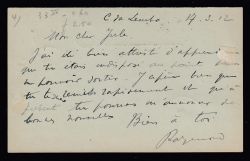 C de Lembo 17.3.12
Mon cher Jule.
J'ai été bien attristé d'apprendre
que tu étais indisposé au point de ne
pouvoir sortir. J'espère bien que
tu te remets rapidement et qu'à
tu pourras m'annoncer de
bonnes nouvelles Bien à toi
Raymond